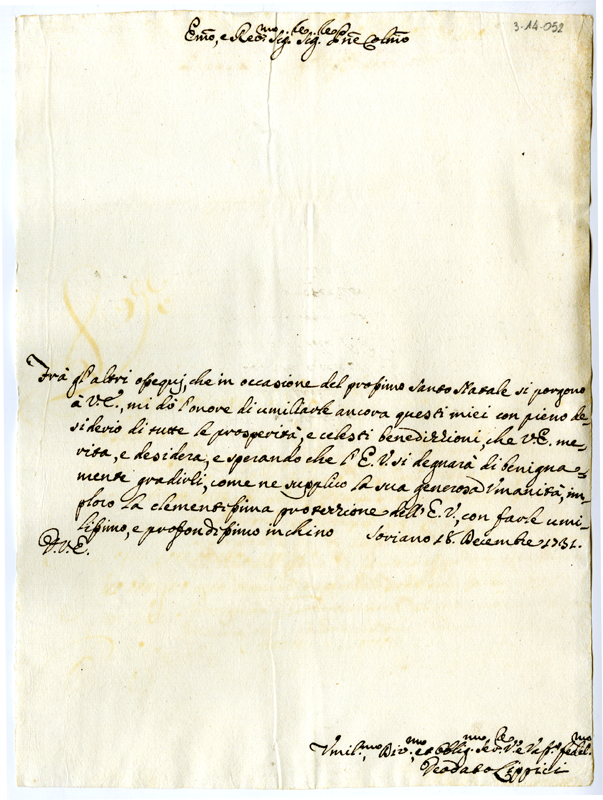 3-14-052
Em̃o, e Rev.mo Sig.re Sig.re Pñe Colm̃o
Frà gl'altri ossequj, che in occasione del prossimo Santo Natale si porgono
à V.E., mi dò l'onore di umiliarle ancora questi miei con pieno de-
siderio di tutte le prosperità, e celesti benedizzioni, che V.E. me-
rita, e desidera, e sperando che l'E.V. si degnarà di benigna-
mente gradirli, come ne supplico la sua generosa Umanità, im-
ploro la clementissima protezzione dell'E.V., con farle umi-
lissimo, e profondissimo inchino Soriano 18. Decembre 1731.
D.V.E.
Umil.mo Div.mo ed Obblig.mo Ser.re e Vass.o fedel.mo
Teodato Lippici